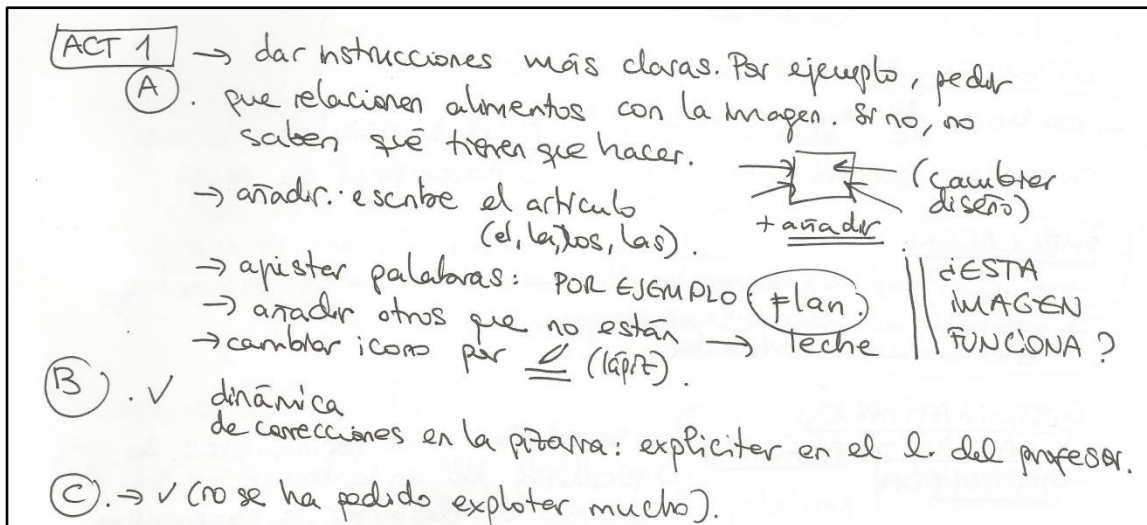 ACT 1 → dar instrucciones más claras. Por ejemplo, pedir
A . que relacionen alimentos con la imagen. Si no, no
saben qué tienen que hacer.
(cambiar
diseño)
+ añadir
→ añadir: escribe el artículo
(el, la, los, las).
→ ajustar palabras: POR EJEMPLO: Flan.
→ añadir otros que no están → leche
→ cambiar icono por (lápiz).
¿ESTA
IMAGEN
FUNCIONA?
B . ✓ dinámica
de correcciones en la pizarra: explicitar en el l. del profesor.
C . → ✓ (no se ha podido explotar mucho).